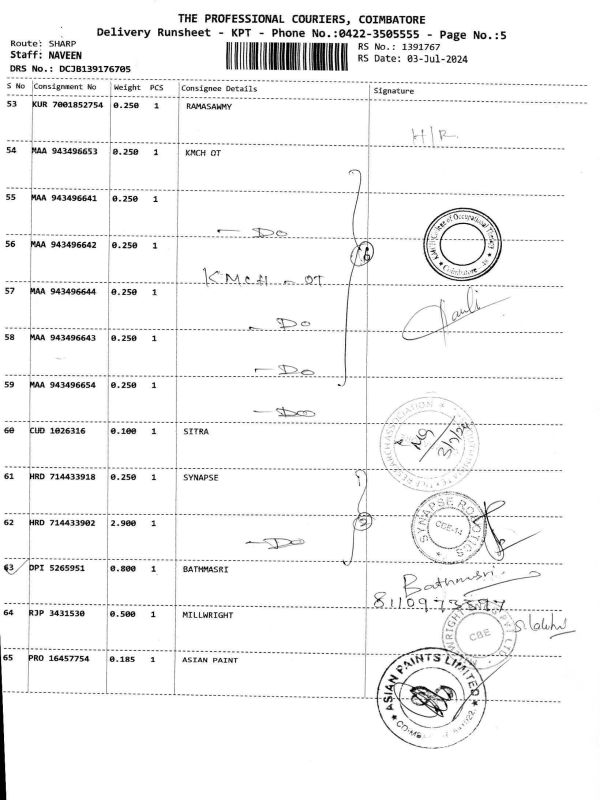 THE PROFESSIONAL COURIERS, COIMBATORE
Delivery Runsheet - KPT - Phone No.:0422-3505555 - Page No.:5
Route: SHARP
RS No.: 1391767
Staff: NAVEEN
RS Date: 03-Jul-2024
DRS No.: DCJB139176705
S No Consignment No Weight PCS Consignee Details Signature
53 KUR 7001852754 0.250 1 RAMASAWMY
H/R
54 MAA 943496653 0.250 1 KMCH OT
55 MAA 943496641 0.250 1
— Do
56 MAA 943496642 0.250 1
6
KMCH - OT
57 MAA 943496644 0.250 1
— Do
58 MAA 943496643 0.250 1
— Do
59 MAA 943496654 0.250 1
— Do
60 CUD 1026316 0.100 1 SITRA
3/7/24
61 HRD 714433918 0.250 1 SYNAPSE
SYNAPSE ROBOTICS
CBE-14
62 HRD 714433902 2.900 1
— Do
63 DPI 5265951 0.800 1 BATHMASRI
Bathmasri
64 RJP 3431530 0.500 1 MILLWRIGHT
CBE
65 PRO 16457754 0.185 1 ASIAN PAINT
ASIAN PAINTS LIMITED